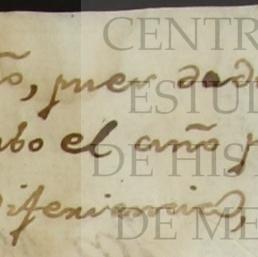 ño, pues dad
ubo el año p
diferiencias,
CENTR
ESTUD
DE HIS
DE ME